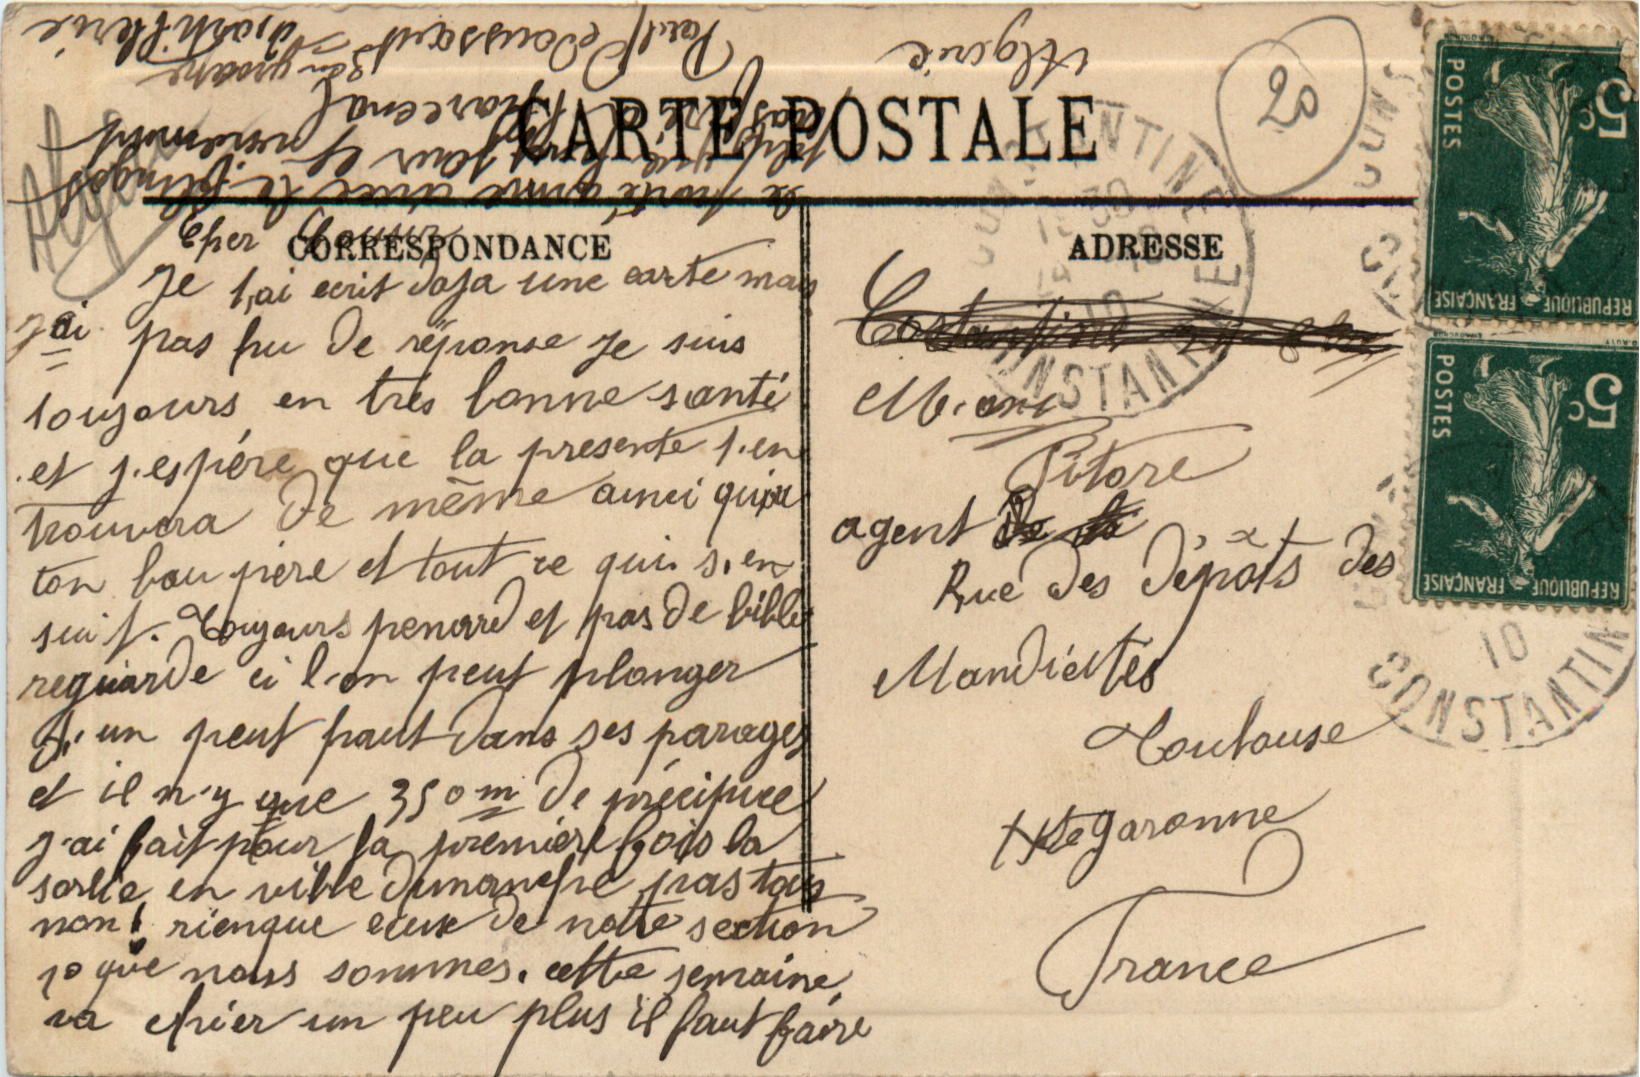 CARTE POSTALE
20
CORRESPONDANCE
ADRESSE
Cher
Je t,ai ecrit deja une carte mais
j'ai pas hu de réponse je suis
toujours en trés bonne santé
et j.espére que la presente t.en
trouvera de même ainci qu'a
ton bau pére et tout ce qui s.en
suit. Toujours penard et pas de bille
reguarde ci l.on peut plonger
d'un peut haut dans ses parages
et il n'y que 350m de précipice
j'ai fait pour la premiére fois la
sortie en ville dimanche pas tous
non! rienque ceux de notre section
10 que nous sommes. cette semaine
va chier un peu plus il faut faire
le porté arme avec le flingot
plus que jour et
Paul
d'artillerie
Algerie
Pitore
agent
Rue des Dépots des
Mandiettes
Toulouse
Hte garonne
France
POSTES
5c
REPUBLIQUE FRANÇAISE
POSTES
5c
REPUBLIQUE FRANÇAISE
CONSTANTINE
CONSTANTINE
10
CONSTANTINE